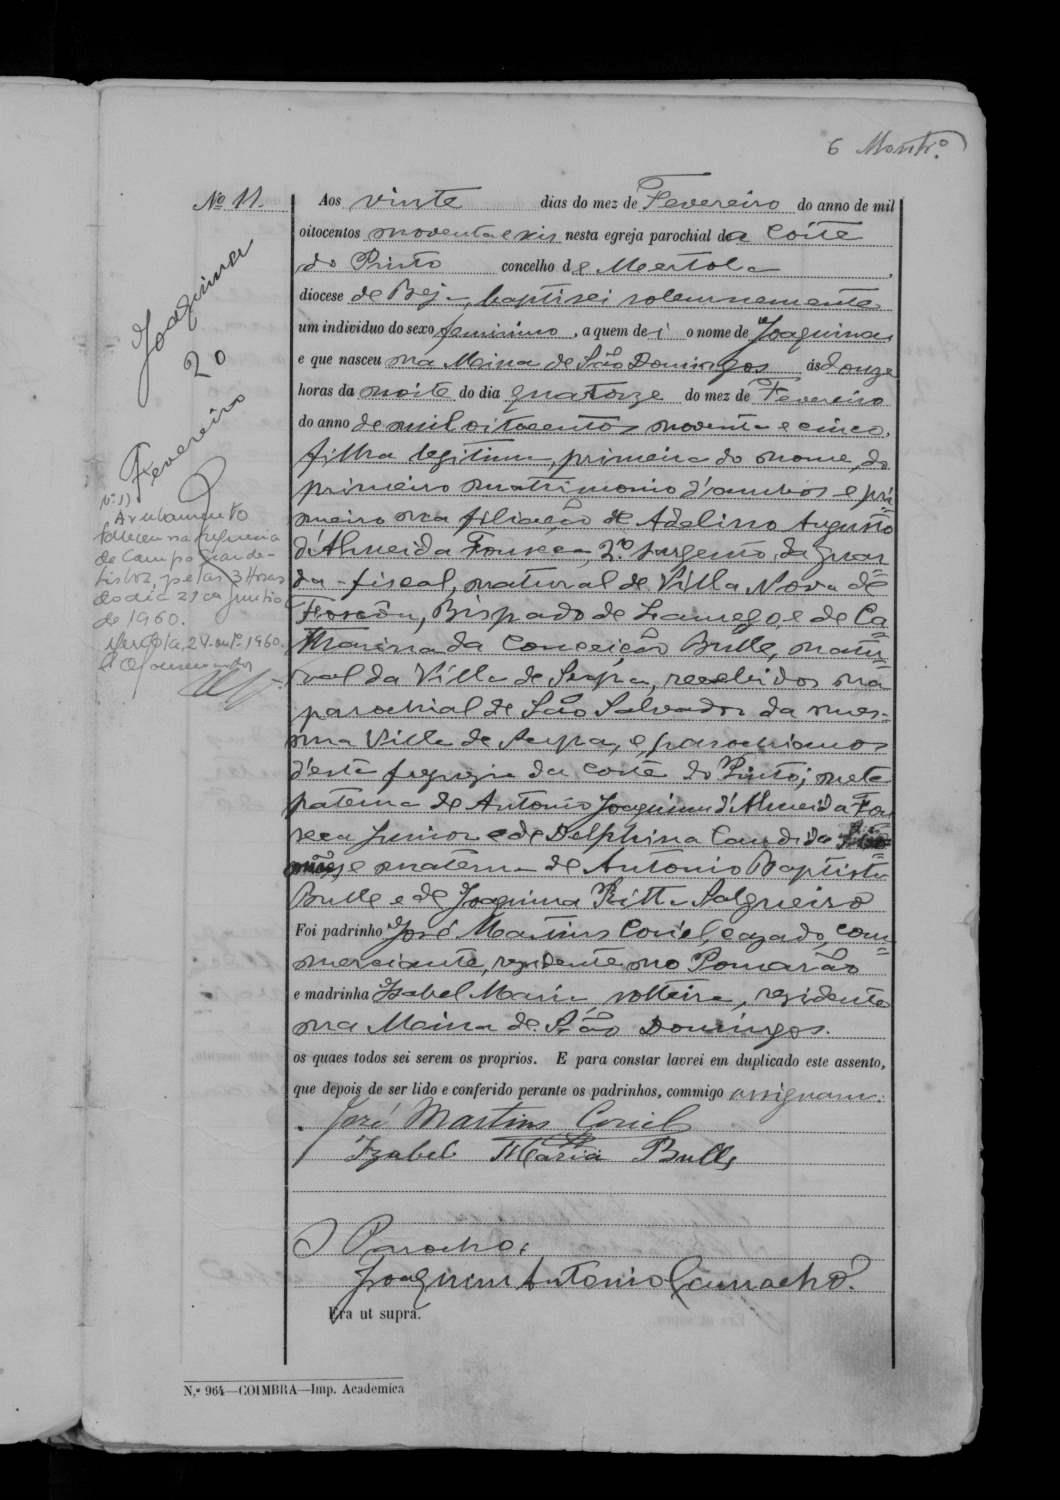 6 Montr.º
Nº 11.
Joaquina
20
Fevereiro
Nº 1)
Averbamento
Faleceu na freguesia
de Campo Grande-
Lisboa, pelas 3 horas
do dia 21 de Junho
de 1960.
Mertola, 24-out.º 1960.
Aos vinte dias do mez de Fevereiro do anno de mil
oitocentos noventa e seis nesta egreja parochial da Côrte
do Pinto concelho de Mertola,
diocese de Beja, baptisei solemnemente
um individuo do sexo feminino, a quem dei o nome de Joaquina
e que nasceu na Mina de São Domingos ás douze
horas da noite do dia quatorze do mez de Fevereiro
do anno de mil oitocentos noventa e cinco,
filha legitima, primeira do nome, do
primeiro matrimonio d'ambos e pri=
meiro na filiação de Adelino Augusto
d'Almeida Fonseca, 2.º sargento da guar
da-fiscal, natural de Villa Nova de
Foscôa, Bispado de Lamego, e de Ca=
tharina da Conceição Bulle, natu=
ral da Villa de Serpa, recebidos na
parochial de São Salvador da mes-
ma Villa de Serpa, e parochianos
d'esta freguezia da Corte do Pinto; neta
paterna de Antonio Joaquim d'Almeida Fon
seca Junior e de Delphina Candida
e materna de Antonio Baptista
Bulle e de Joaquina Ritta Salgueiro
Foi padrinho José Martins Coriel, cazado, com=
merciante, rezidente no Pomarão
e madrinha Izabel Maria solteira, rezidente
na Mina de São Domingos.
os quaes todos sei serem os proprios. E para constar lavrei em duplicado este assento,
que depois de ser lido e conferido perante os padrinhos, commigo assignam.
José Martins Coriel
Izabel Maria Bulle
O Parocho:
Joaquim Antonio Camacho.
Era ut supra.
N.º 964—COIMBRA—Imp. Academica